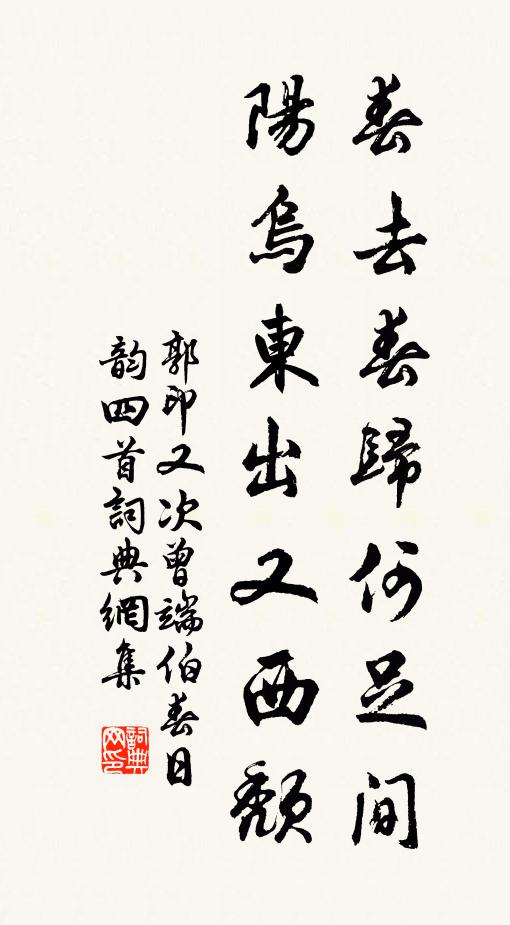 春去春歸何足间
陽烏東出又西頹
郭印又次曾端伯春日
韵四首詞典網集
詞典
网印